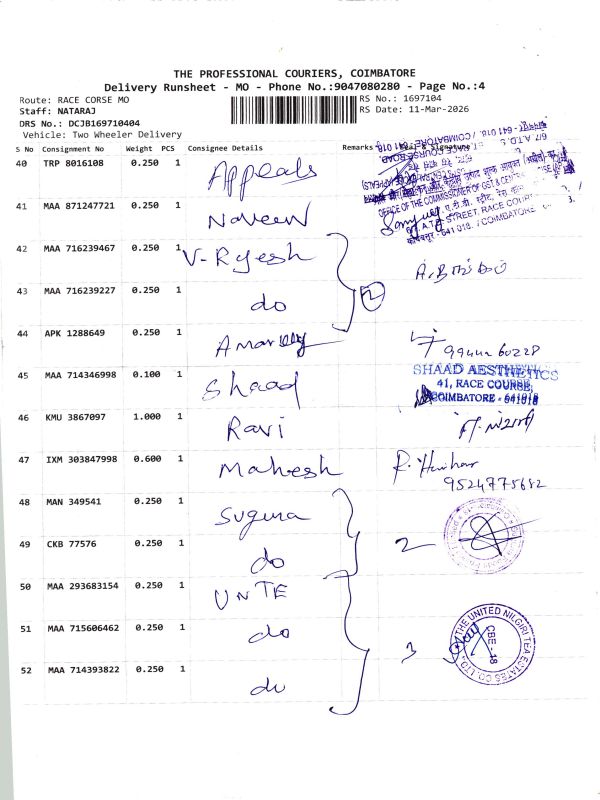 THE PROFESSIONAL COURIERS, COIMBATORE
Delivery Runsheet - MO - Phone No.:9047080280 - Page No.:4
Route: RACE CORSE MO
RS No.: 1697104
Staff: NATARAJ
RS Date: 11-Mar-2026
DRS No.: DCJB169710404
Vehicle: Two Wheeler Delivery
S No Consignment No Weight PCS Consignee Details Remarks & Signature
40 TRP 8016108 0.250 1 Appeals
OFFICE OF THE COMMISSIONER OF GST & CENTRAL
6/7 A.T.D. STREET, RACE COURSE
641 018. / COIMBATORE
41 MAA 871247721 0.250 1 Naveen
42 MAA 716239467 0.250 1 V-Rajesh
43 MAA 716239227 0.250 1 do 2
44 APK 1288649 0.250 1
99442 60228
45 MAA 714346998 0.100 1 Shaad
SHAAD AESTHETICS
41, RACE COURSE,
COIMBATORE - 641018
46 KMU 3867097 1.000 1 Ravi
47 IXM 303847998 0.600 1 Mahesh
9524775682
48 MAN 349541 0.250 1 Suguna
49 CKB 77576 0.250 1 do 2
50 MAA 293683154 0.250 1 UNTE
51 MAA 715606462 0.250 1 do 3
THE UNITED NILGIRI TEA ESTATES CO. LTD.
CBE - 18
52 MAA 714393822 0.250 1 do